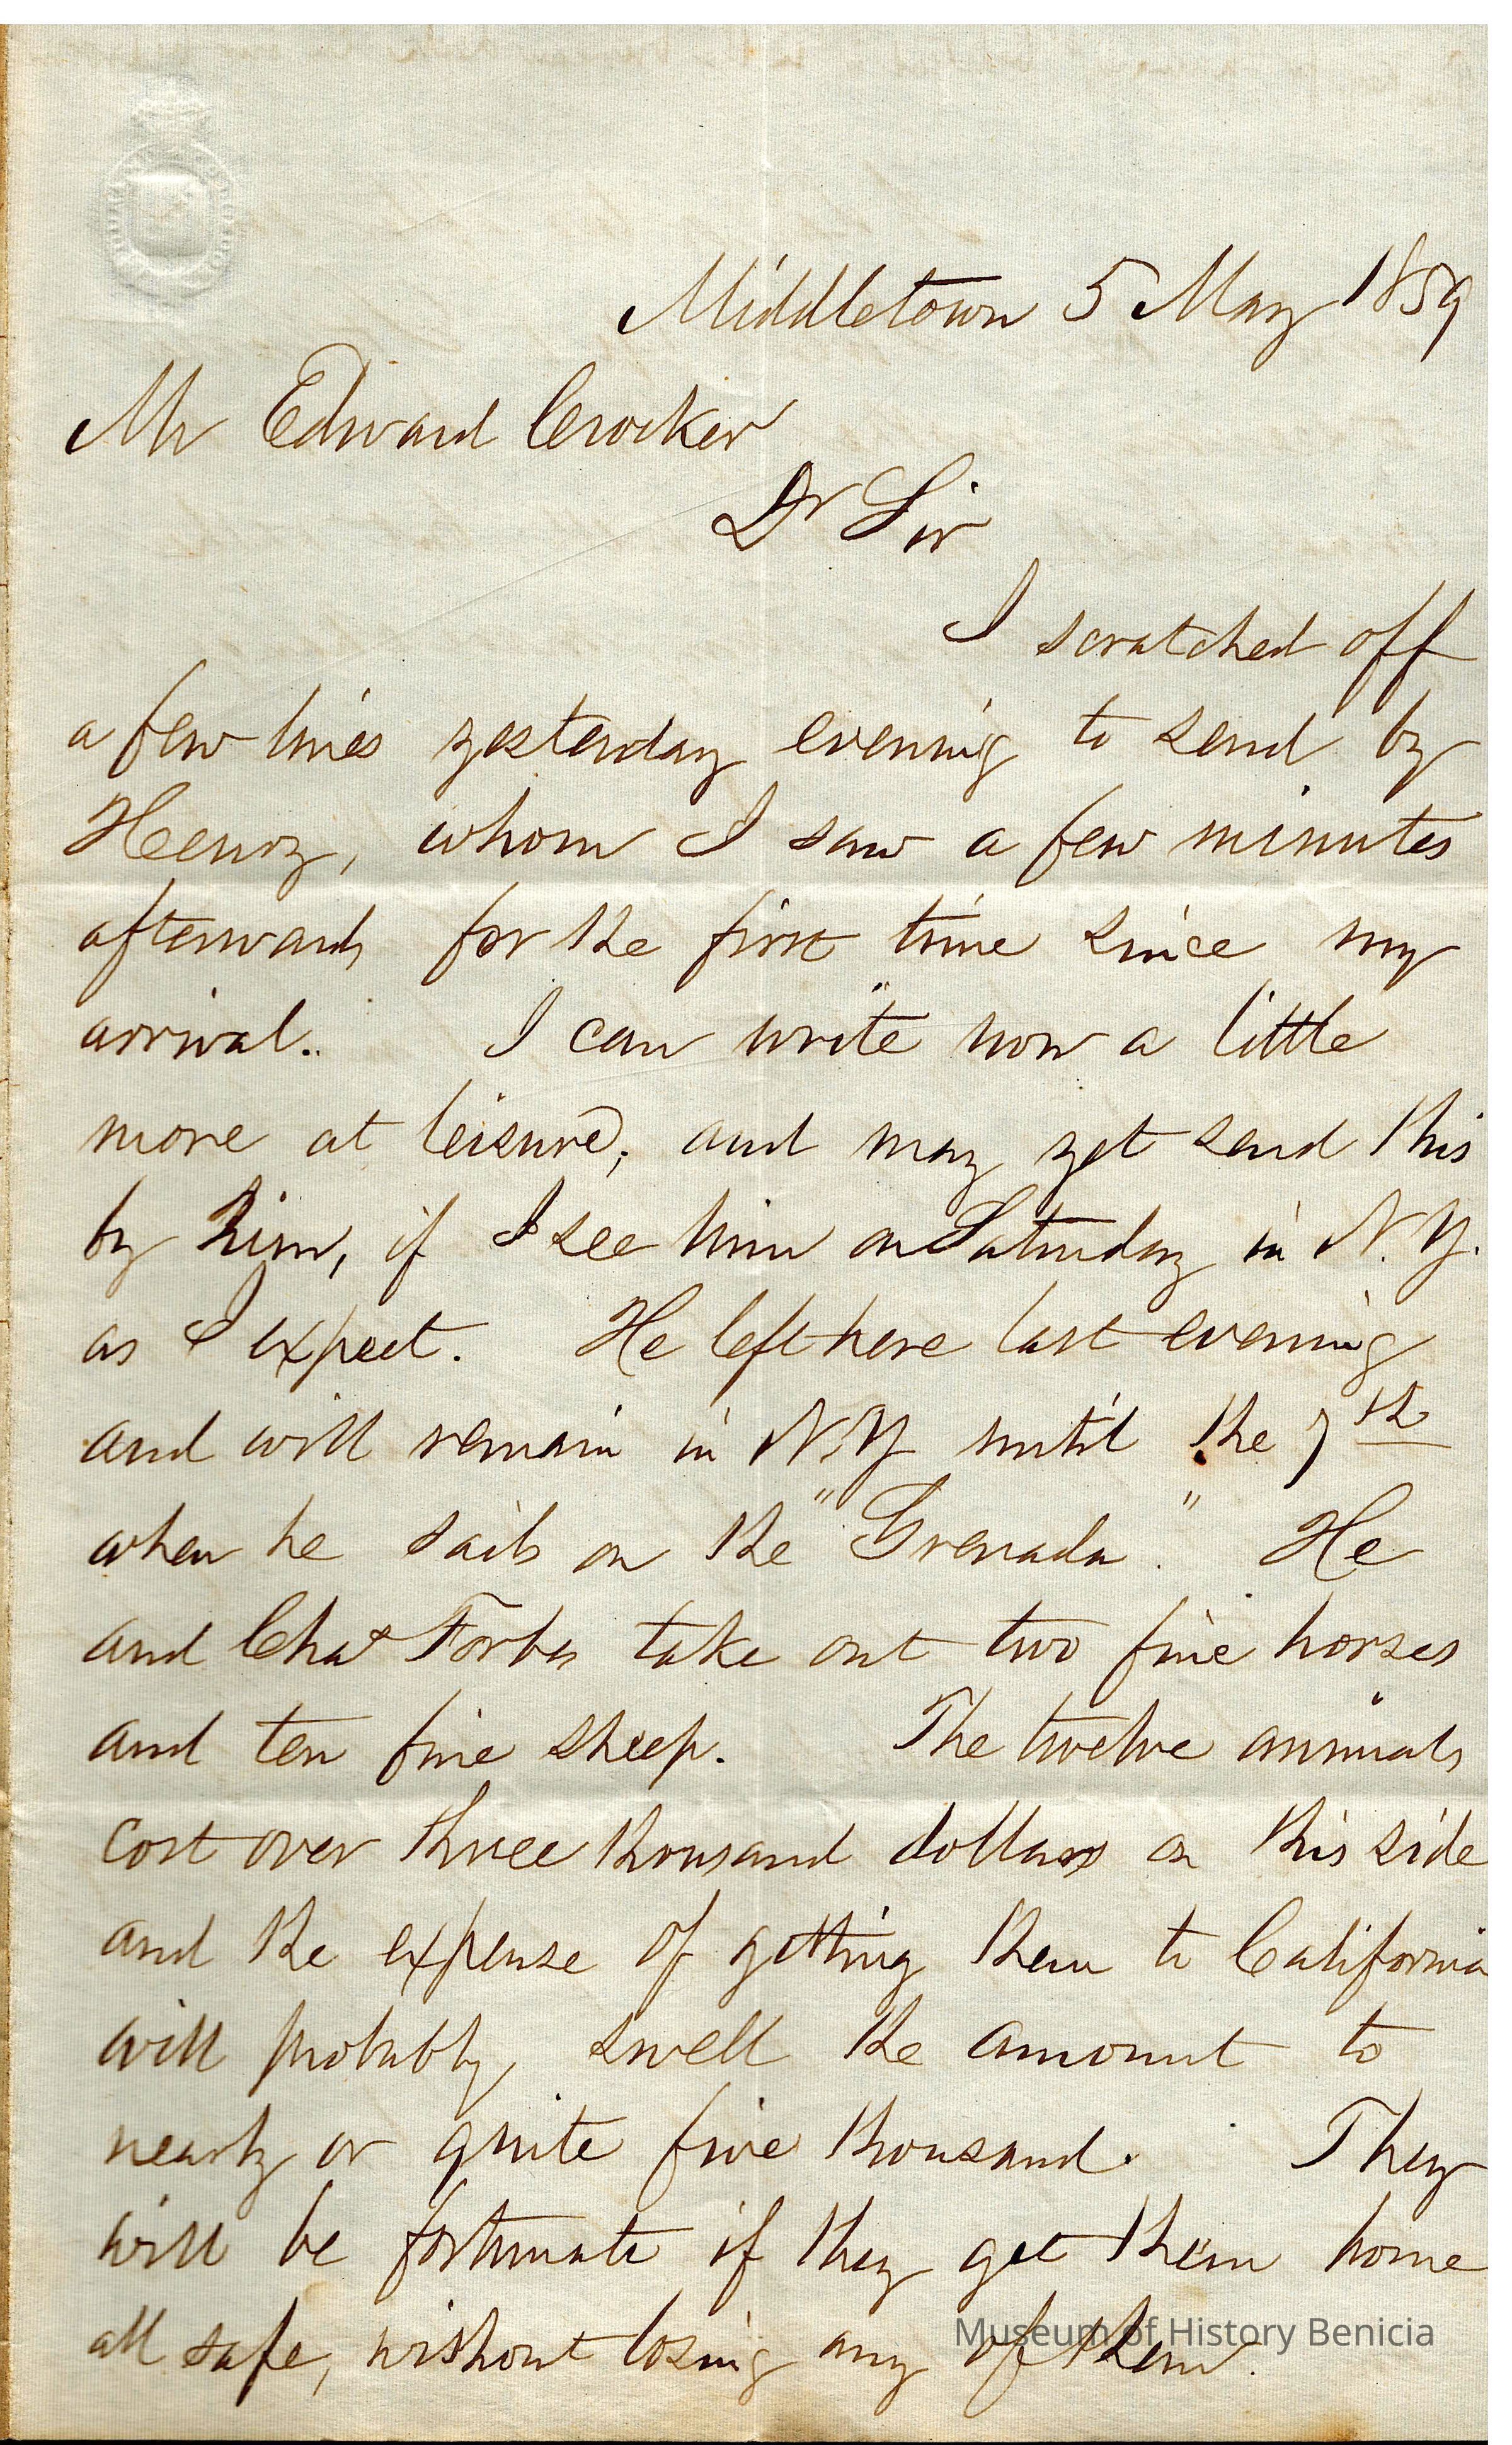 Middletown 5 May 1859
Mr Edward Crocker
Dr Sir
I scratched off
a few lines yesterday evening to send by
Henry, whom I saw a few minutes
afterwards for the first time since my
arrival. I can write now a little
more at leisure, and may yet send this
by him, if I see him on Saturday in N.Y.
as I expect. He left here last evening
and will remain in N.Y until the 7th
when he sails on the "Grenada." He
and Chas Forbes take out two fine horses
and ten fine sheep. The twelve animals
cost over three thousand dollars on this side
and the expense of getting them to California
will probably swell the amount to
nearly or quite five thousand. They
will be fortunate if they get them home
all safe, without losing any of them.
Museum of History Benicia